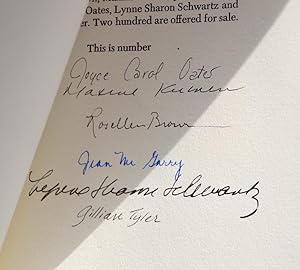 Oates, Lynne Sharon Schwartz and
er. Two hundred are offered for sale.
This is number
Joyce Carol Oates
Maxine Kumin
Rosellen Brown
Jean McGarry
Lynne Sharon Schwartz
Gillian Tyler